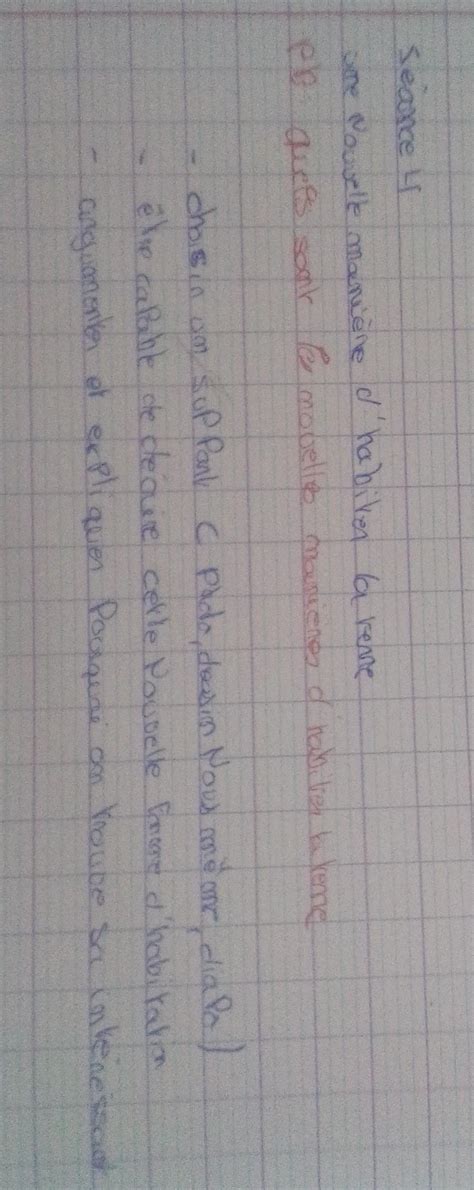 Séance 4
une Nouvelle manière d'habiter la terre
pb: quels sont les nouvelles manières d'habiter la terre
- choisir un support (photo, dessin Nous même, diapo)
- être capable de décrire cette Nouvelle forme d'habitation
- argumenter et expliquer Pourquoi on trouve sa intéressant